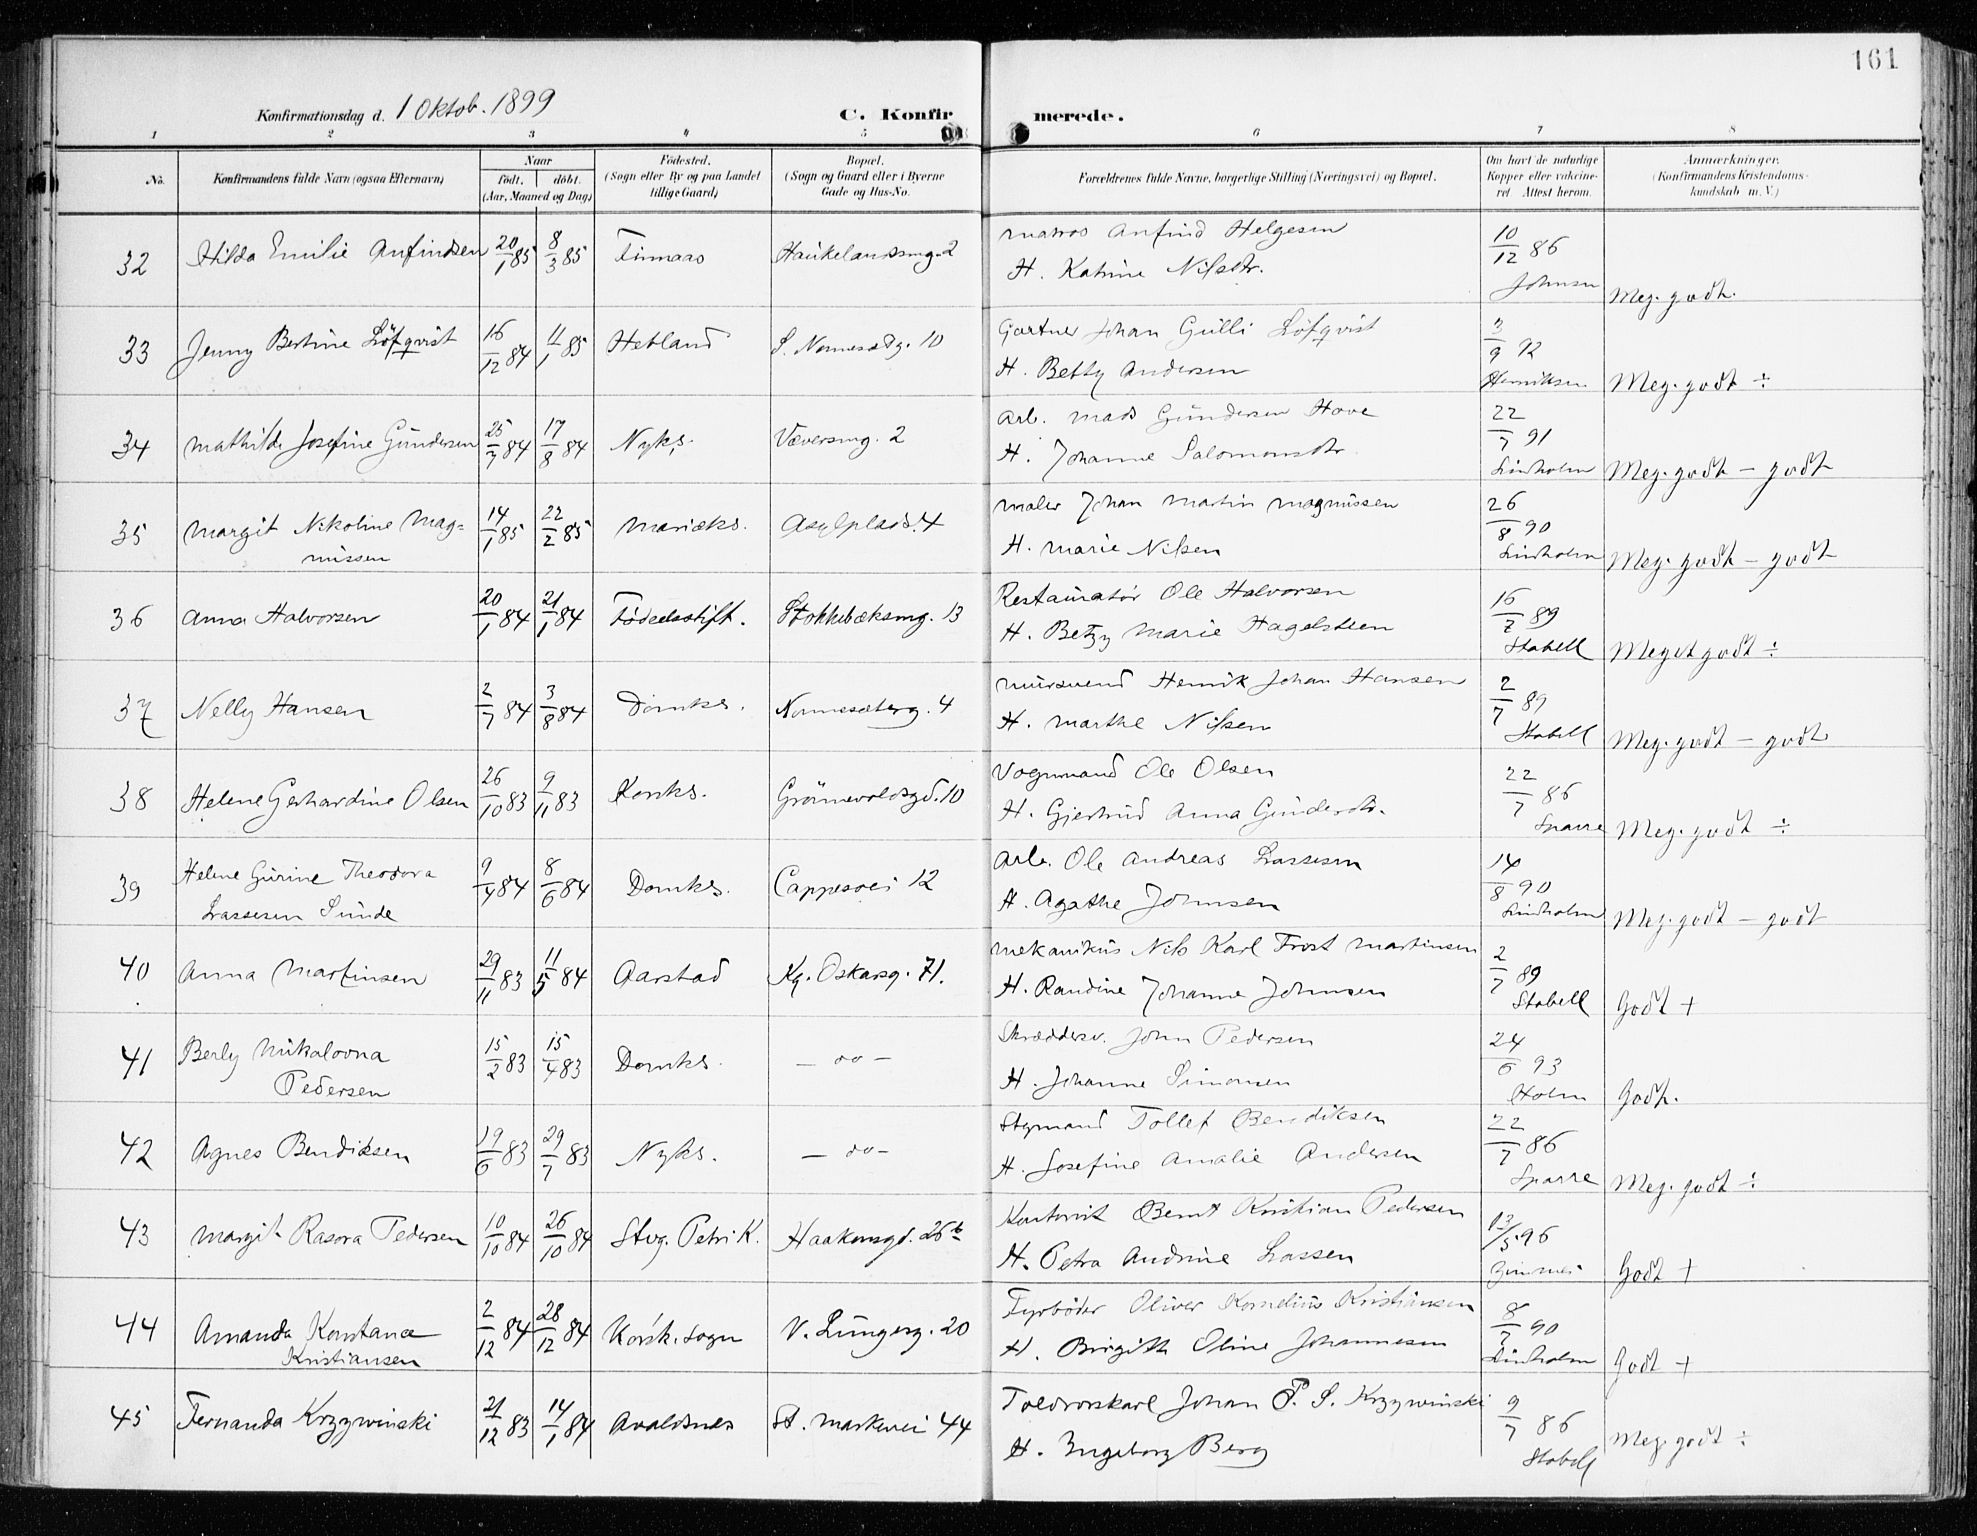 161
Konfirmationsdag d. 1 Oktob. 1899 C. Konfirmerede.
1 2 3 4 5 6 7 8
No. Konfirmandens fulde Navn (ogsaa Efternavn) Naar födt, döbt. (Aar, Maaned og Dag) Födested. (Sogn eller By og paa Landet tillige Gaard) Bopæl. (Sogn og Gaard eller i Byerne Gade og Hus-No. Forældrenes fulde Navne, borgerlige Stilling (Næringsvei) og Bopæl. Om havt de naturlige Kopper eller vakcineret Attest herom. Anmærkninger. (Konfirmandens Kristendomskundskab m. V.)
32 Hilda Emilie Anfindsen 20/1 85 8/3 85 Finnaas Haukelandsmg. 2 Matros Anfind Helgesen 10/12 86
H. Katrine Nilsdtr. Johnsen Meg. godt.
33 Jenny Bertine Löfqvist 16/12 84 11/1 85 Hetland S. Nornesætg. 10 Gartner Johan Gulli Löfqvist 3/9 92
H. Betty Andersen Henriksen Meg. godt ÷
34 Mathilde Josefine Gundersen 25/7 84 17/8 84 Nyks. Væversmg. 2 Arb. Mads Gundersen Hove 22/7 91
H. Johanne Salomonsdtr. Lindholm Meg. godt - godt
35 Margit Nikoline Mag= 14/1 85 22/2 85 Mariæks. Asylplads. 4 Maler Johan Martin Magnussen 26/8 90
nussen H. Marie Nilsen Lindholm Meg. godt - godt
36 Anna Halvorsen 20/1 84 21/1 84 Födselsstift. Stokkebæksmg. 13 Restauratör Ole Halvorsen 16/7 89
H. Betzy Marie Hagelsteen Stabell Meget godt ÷
37 Nelly Hansen 2/7 84 3/8 84 Domks. Nornesæterg. 4 Mursvend Henrik Johan Hansen 2/7 89
H. Marthe Nilsen Stabell Meg. godt - godt
38 Helene Gerhardine Olsen 26/10 83 9/11 83 Korsks. Grönnevoldsgd. 10 Vognmand Ole Olsen 22/7 86
H. Gjertrud Anna Gundersdtr. Sparre Meg. godt ÷
39 Helene Gurine Theodora 9/4 84 8/6 84 Domks. Cappesvei 12 Arb. Ole Andreas Lassesen 14/8 90
Lassesen Sunde H. Agathe Johnsen Lindholm Meg. godt - godt
40 Anna Martinsen 29/11 83 11/5 84 Aarstad Kg. Oskarsg. 71. Mekanikus Nils Karl Frost Martinsen 2/7 89
H. Randine Johanne Johnsen Stabell Godt +
41 Berly Nikalovna 15/2 83 15/4 83 Domks. - do - Skrædders. John Pedersen 24/6 93
Pedersen H. Johanne Simonsen Holm Godt.
42 Agnes Bendiksen 19/6 83 29/7 83 Nyks. - do - Styrmand Tollef Bendiksen 22/7 86
H. Josefine Amalie Andersen Sparre Meg. godt ÷
43 Margit Rasora Pedersen 10/10 84 26/10 84 Stvg. Petri K. Haakonsgd. 26 b Kontorist Bernt Kristian Pedersen 13/5 96
H. Petra Andrine Lassen Zimmer Godt +
44 Amanda Konstance 2/12 84 28/12 84 Korsk. sogn V. Lungeg. 20 Fyrböder Oliver Kornelius Kristiansen 8/7 90
Kristiansen H. Birgitte Oline Johannesen Lindholm Godt +
45 Fernanda Krzywinski 21/12 83 14/1 84 Avaldsnes St. Markevei 44 Toldrorskarl Johan P. S. Krzywinski 9/7 86
H. Ingeborg Berg Stabell Meg. godt ÷